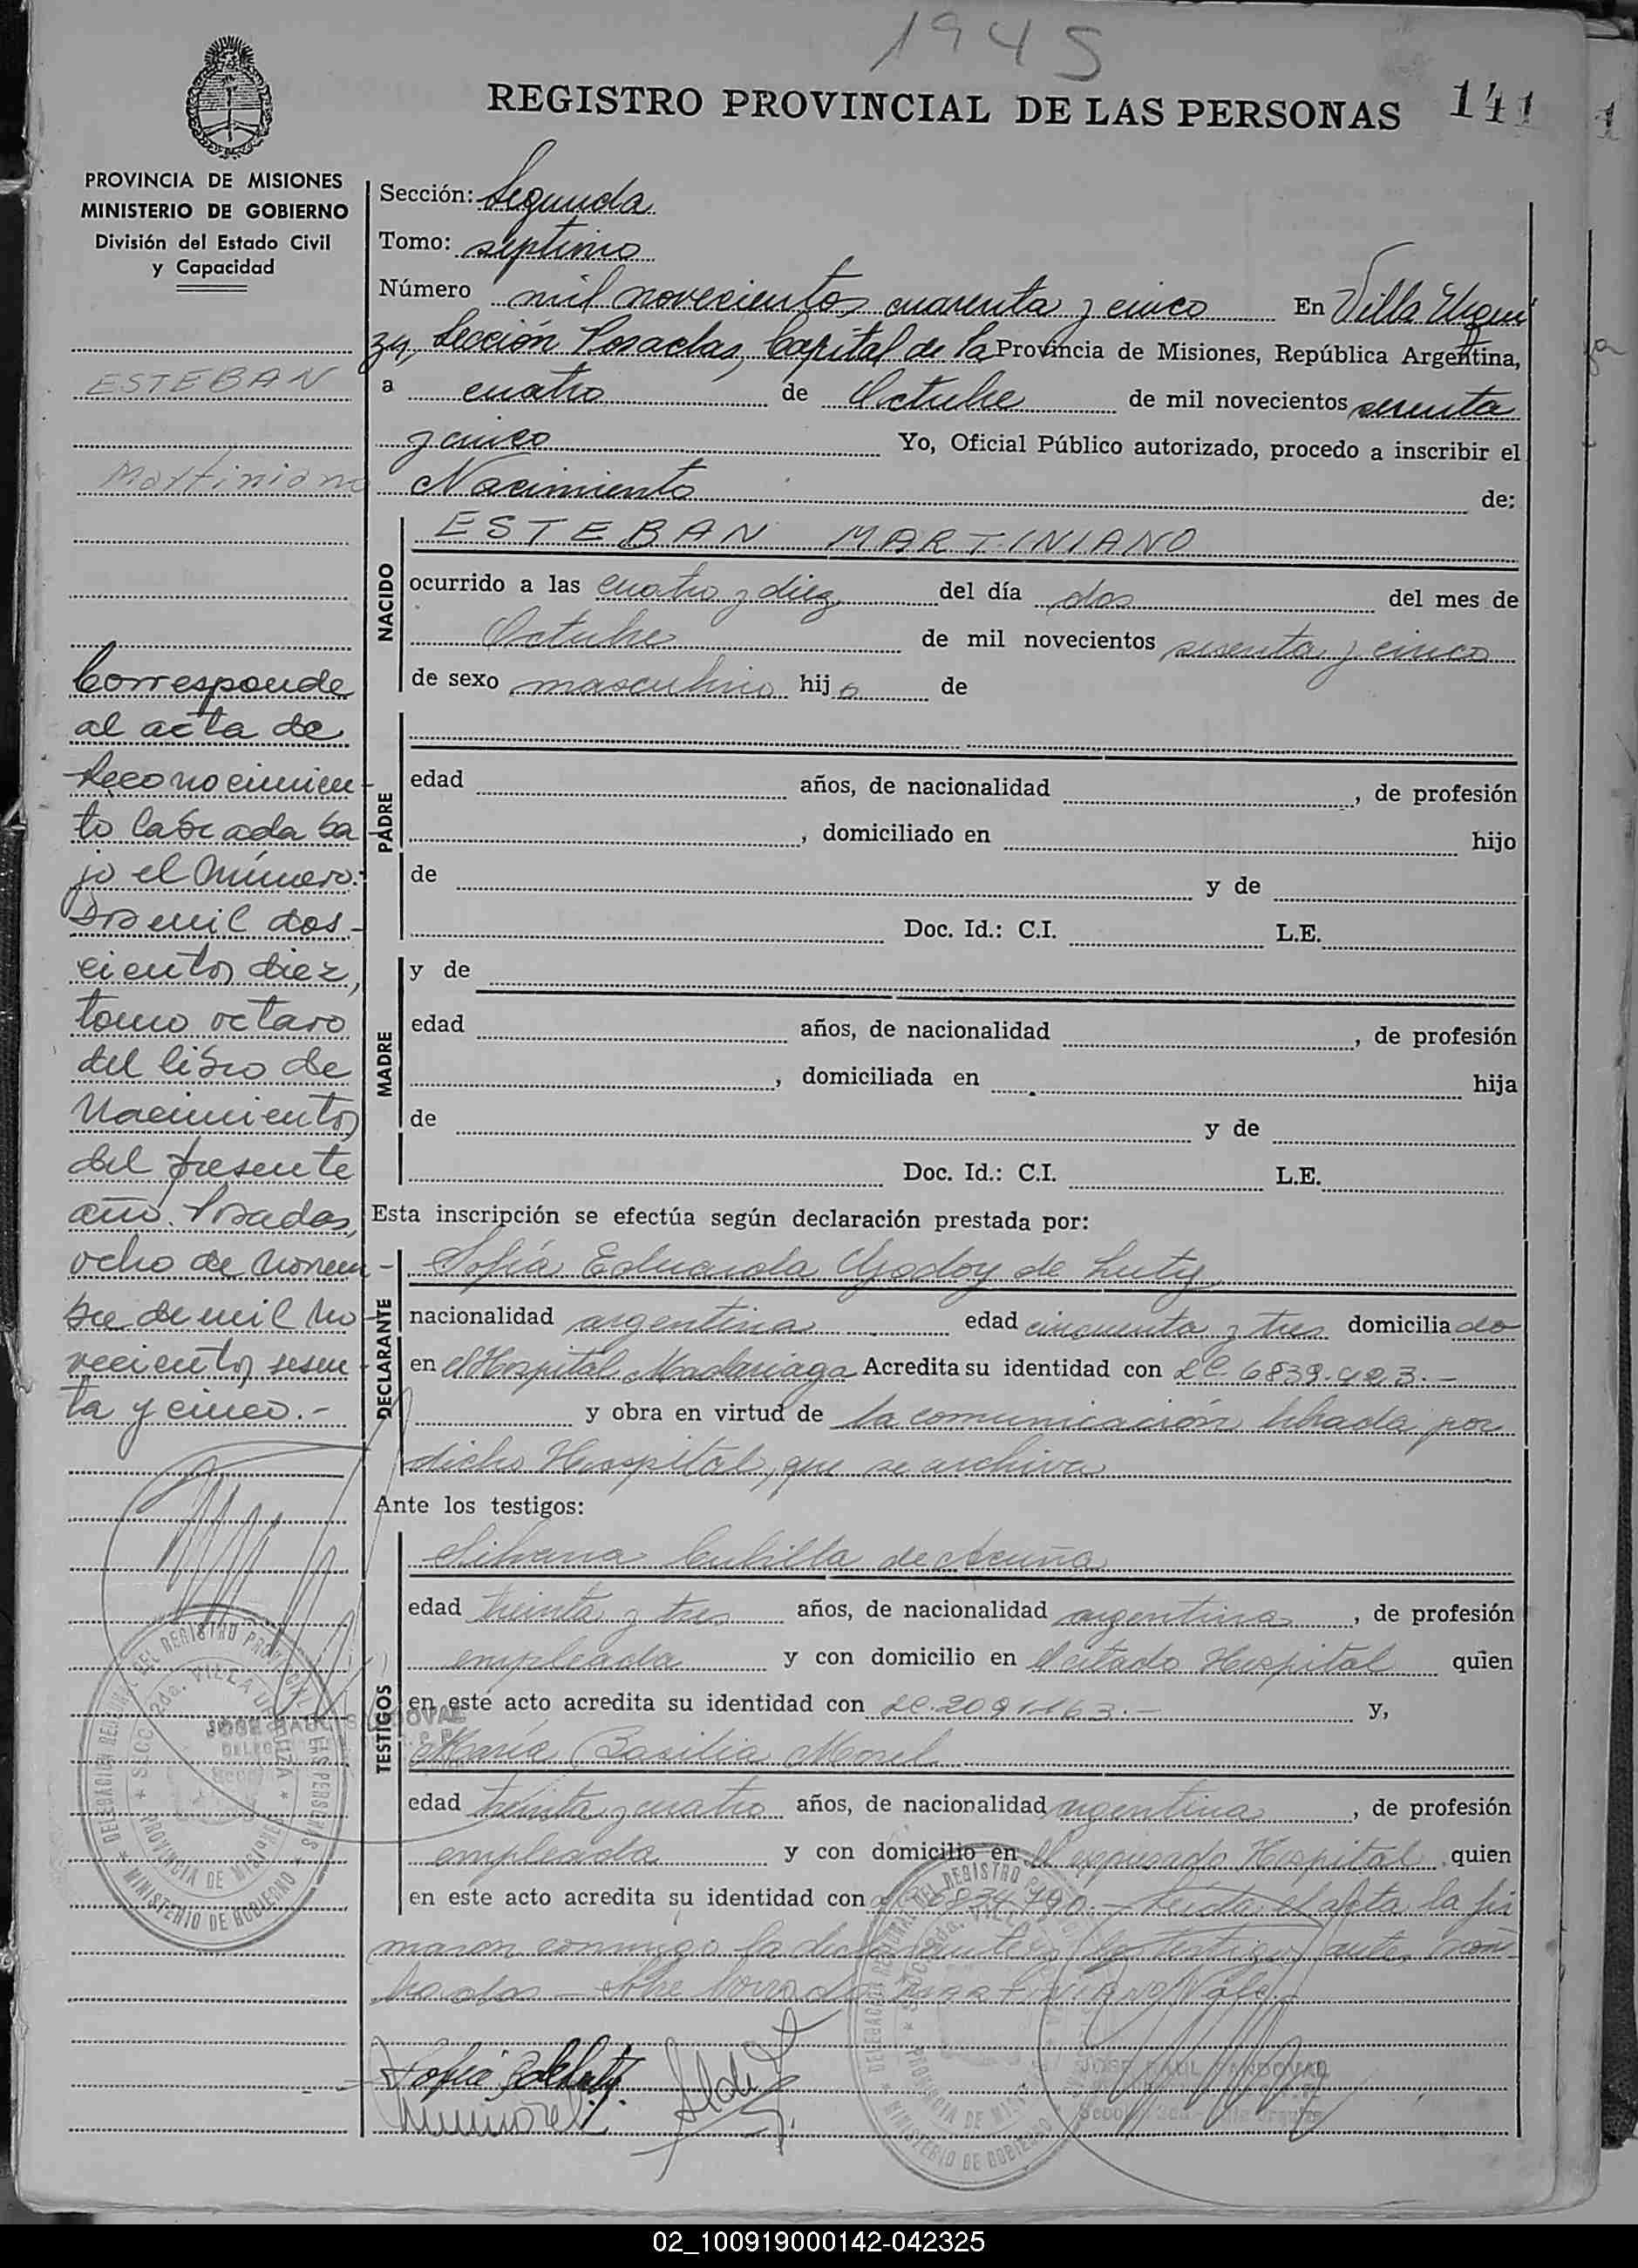 1945
REGISTRO PROVINCIAL DE LAS PERSONAS 141
PROVINCIA DE MISIONES
MINISTERIO DE GOBIERNO
División del Estado Civil
y Capacidad
ESTEBAN
Martiniano
Corresponde
al acta de
Reconocimien-
to labrada ba
jo el Número:
Dos mil dos-
cientos diez,
tomo octavo
del libro de
Nacimientos
del presente
año. Posadas,
ocho de Noviem-
bre de mil no-
vecientos sesen-
ta y cinco.-
Sección: Segunda
Tomo: septimo
Número mil novecientos cuarenta y cinco En Villa Urqui
za, Sección Posadas, Capital de la Provincia de Misiones, República Argentina,
a cuatro de Octubre de mil novecientos sesenta
y cinco Yo, Oficial Público autorizado, procedo a inscribir el
Nacimiento de:
NACIDO
ESTEBAN MARTINIANO
ocurrido a las cuatro y diez del día dos del mes de
Octubre de mil novecientos sesenta y cinco
de sexo masculino hijo de
PADRE
edad años, de nacionalidad , de profesión
, domiciliado en hijo
de y de
Doc. Id.: C.I. L.E.
MADRE
y de
edad años, de nacionalidad , de profesión
, domiciliada en hija
de y de
Doc. Id.: C.I. L.E.
Esta inscripción se efectúa según declaración prestada por:
DECLARANTE
Sofía Eduarda Godoy de Luty
nacionalidad argentina edad cincuenta y tres domiciliado
en el Hospital Madariaga Acredita su identidad con LC. 6839.423.-
y obra en virtud de la comunicación librada por
dicho Hospital, que se archiva
Ante los testigos:
TESTIGOS
Silvana Cubilla de Acuña
edad treinta y tres años, de nacionalidad argentina , de profesión
empleada y con domicilio en el citado Hospital quien
en este acto acredita su identidad con LC. 2091163.- y,
María Basilia Morel
edad treinta y cuatro años, de nacionalidad argentina , de profesión
empleada y con domicilio en el expresado Hospital quien
en este acto acredita su identidad con 6834790.- Leída el acta la fir
maron conmigo la declarante y los testigos antes nom-
brados - Sobre borrado MARTINIANO Vale.
DELEGACION REGIONAL DEL REGISTRO PROVINCIAL DE LAS PERSONAS
SECC. 2da. VILLA URQUIZA
PROVINCIA DE MISIONES
MINISTERIO DE GOBIERNO
JOSE RAUL SANDOVAL
JOSE RAUL SANDOVAL
02_100919000142-042325